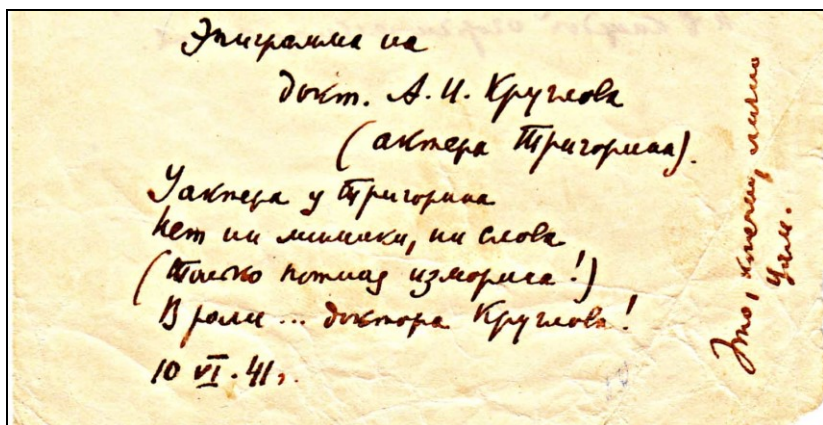 Эпиграмма на
докт. А. И. Круглова
(актера Тригорина).
У актера у Тригорина
Нет ни мимики, ни слова
(Только изморина!)
В роли... доктора Круглова!
10 VI. 41 г.
Это, лично